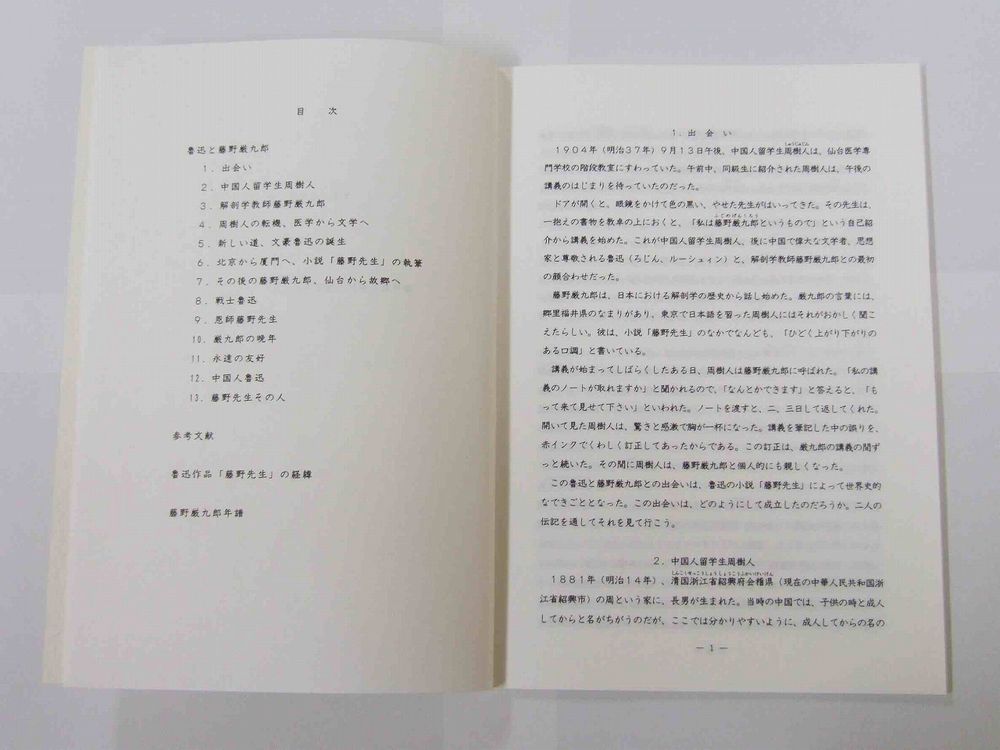 目　次
魯迅と藤野厳九郎
1．出会い
2．中国人留学生周樹人
3．解剖学教師藤野厳九郎
4．周樹人の転機、医学から文学へ
5．新しい道、文豪魯迅の誕生
6．北京から厦門へ、小説「藤野先生」の執筆
7．その後の藤野厳九郎、仙台から故郷へ
8．戦士魯迅
9．恩師藤野先生
10．厳九郎の晩年
11．永遠の友好
12．中国人魯迅
13．藤野先生その人
参考文献
魯迅作品「藤野先生」の経緯
藤野厳九郎年譜
1．出 会 い
しゅうじゅじん
1904年（明治37年）9月13日午後、中国人留学生周樹人は、仙台医学専
門学校の階段教室にすわっていた。午前中、同級生に紹介された周樹人は、午後の
講義のはじまりを待っていたのだった。
ドアが開くと、眼鏡をかけて色の黒い、やせた先生がはいってきた。その先生は、
ふじのげんくろう
一抱えの書物を教卓の上におくと、「私は藤野厳九郎というもので」という自己紹
介から講義を始めた。これが中国人留学生周樹人、後に中国で偉大な文学者、思想
家と尊敬される魯迅（ろじん、ルーシュィン）と、解剖学教師藤野厳九郎との最初
の顔合わせだった。
藤野厳九郎は、日本における解剖学の歴史から話し始めた。厳九郎の言葉には、
郷里福井県のなまりがあり、東京で日本語を習った周樹人にはそれがおかしく聞こ
えたらしい。彼は、小説「藤野先生」のなかでなんども、「ひどく上がり下がりの
ある口調」と書いている。
講義が始まってしばらくしたある日、周樹人は藤野厳九郎に呼ばれた。「私の講
義のノートが取れますか」と聞かれるので、「なんとかできます」と答えると、「も
って来て見せて下さい」といわれた。ノートを渡すと、二、三日して返してくれた。
開いて見た周樹人は、驚きと感激で胸が一杯になった。講義を筆記した中の誤りを、
赤インクでくわしく訂正してあったからである。この訂正は、厳九郎の講義の間ず
っと続いた。その間に周樹人は、藤野厳九郎と個人的にも親しくなった。
この魯迅と藤野厳九郎との出会いは、魯迅の小説「藤野先生」によって世界史的
なできごととなった。この出会いは、どのようにして成立したのだろうか。二人の
伝記を通してそれを見て行こう。
2．中国人留学生周樹人
しんこくせっこうしょうしょうこうふかいけいけん
1881年（明治14年）、清国浙江省紹興府会稽県（現在の中華人民共和国浙
江省紹興市）の周という家に、長男が生まれた。当時の中国では、子供の時と成人
してからと名がちがうのだが、ここでは分かりやすいように、成人してからの名の
— 1 —